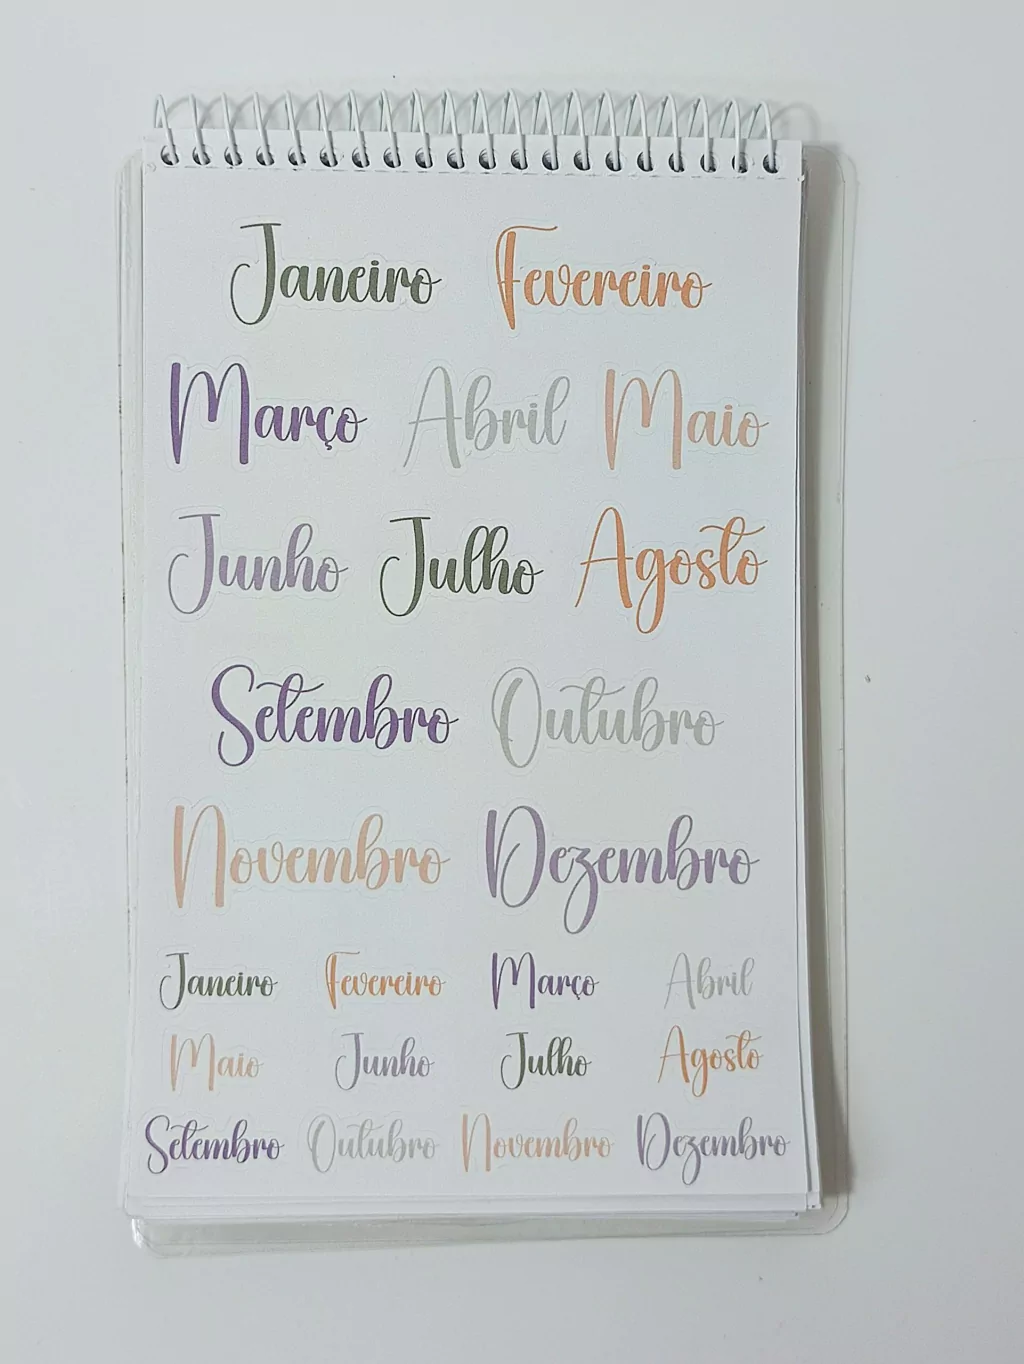 Janeiro Fevereiro
Março Abril Maio
Junho Julho Agosto
Setembro Outubro
Novembro Dezembro
Janeiro Fevereiro Março Abril
Maio Junho Julho Agosto
Setembro Outubro Novembro Dezembro